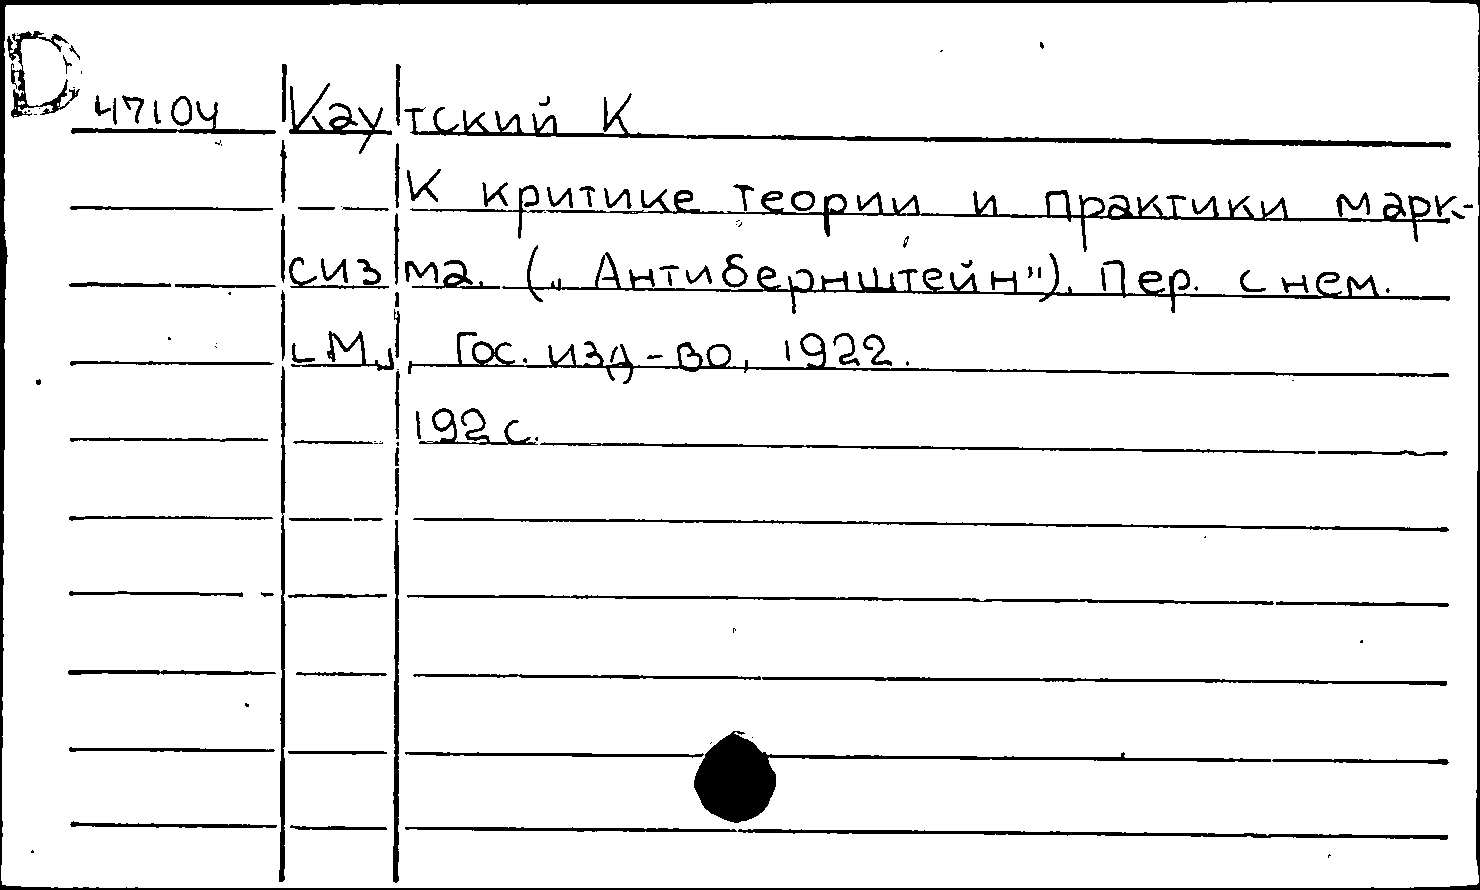 D 47104 Каутский К
К критике теории и практики марк-
сизма. („Антибернштейн"). Пер. с нем.
[М.], Гос. изд-во, 1922.
192 с.